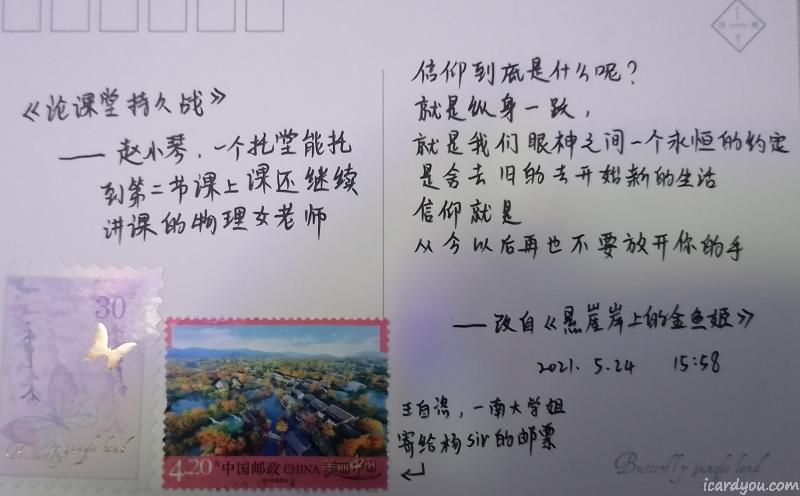 《论课堂持久战》
——赵小琴,一个拖堂能拖
到第二节课上课还继续
讲课的物理女老师
信仰到底是什么呢?
就是纵身一跃,
就是我们眼神之间一个永恒的约定
是舍去旧的去开始新的生活
信仰就是
从今以后再也不要放开你的手
——改自《悬崖岸上的金鱼姬》
2021. 5.24 15:58
30
Butterfly jungle land
4.20元
中国邮政 CHINA
美丽中国
一南大学姐
寄给杨sir的邮票
Butterfly jungle land
icardyou.com